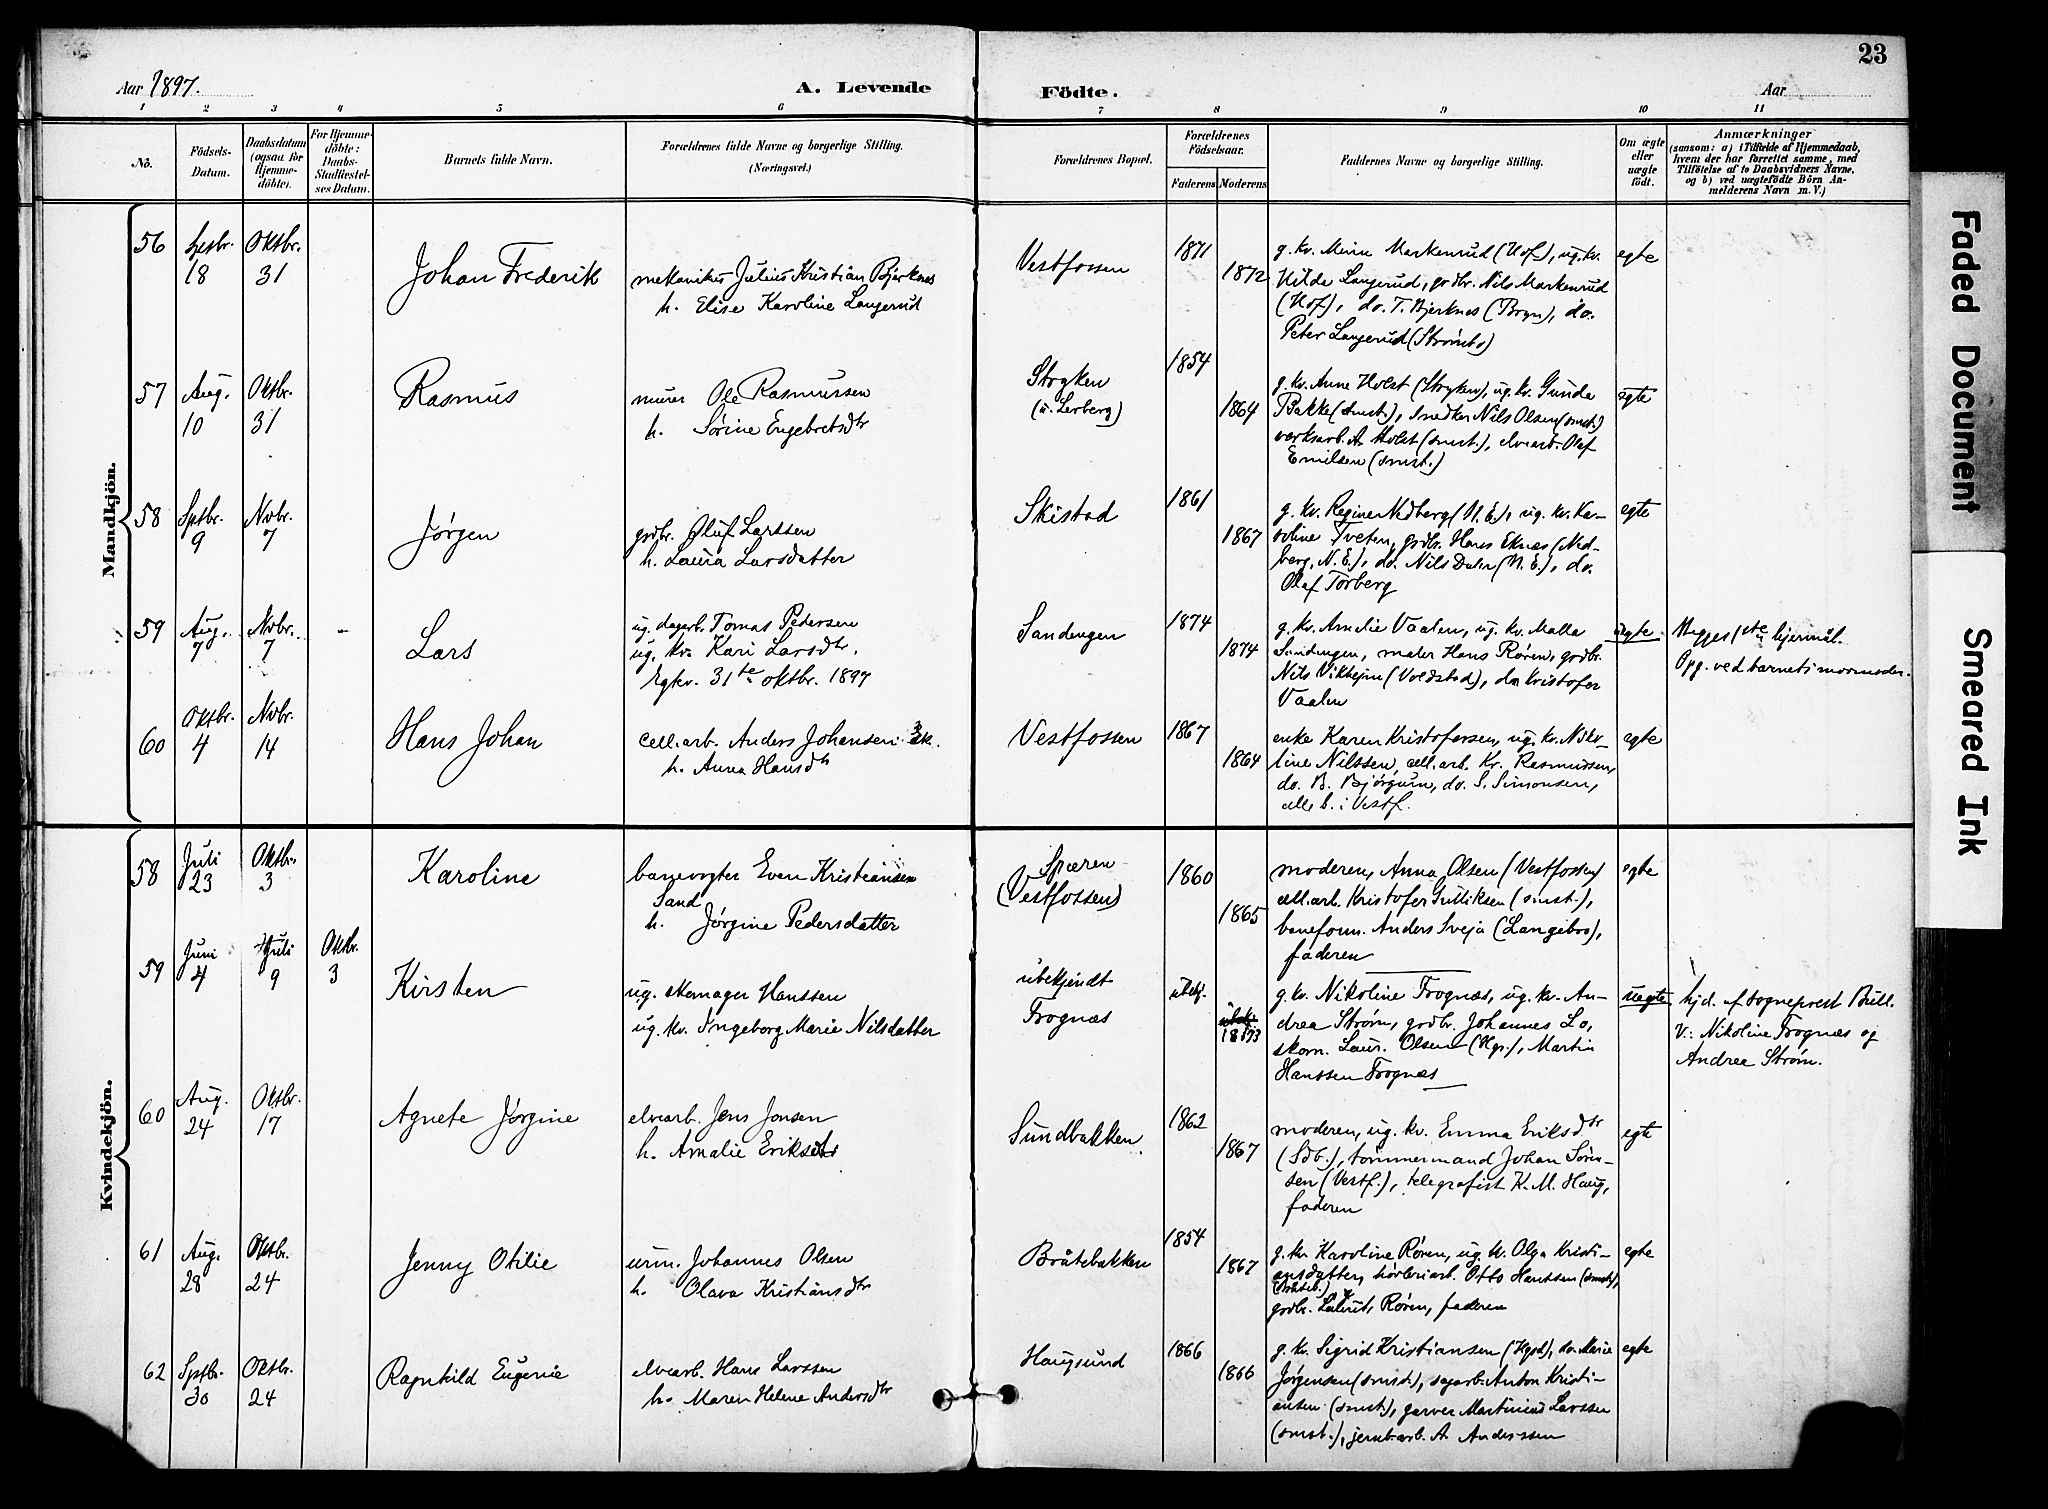 23
Aar 1897.
A. Levende Födte.
Aar
1 2 3 4 5 6 7 8 9 10 11
No.
Födsels-Datum.
Daabsdatum (ogsaa for Hjemme-döbte).
For Hjemme-döbte: Daabs-Stadfæstel-ses Datum.
Barnets fulde Navn.
Forældrenes fulde Navne og borgerlige Stilling. (Næringsvei.)
Forældrenes Bopæl.
Forældrenes Födselsaar.
Faderens Moderens
Faddernes Navne og borgerlige Stilling.
Om ægte eller uægte födt.
Anmærkninger
(sansom: a) i Tilfælde af Hjemmedaab, hvem der har forrettet samme, med Tilföielse af to Daabsvidners Navne, og b) ved uægtefödte Börn An-melderens Navn m. V.)
Mandkjön.
56
Septbr. 18
Oktbr. 31
Johan Frederik
mekanikus Julius Kristian Bjerknes
h. Elise Karoline Langerud
Vestfossen
1871
1872
g. kv. Mein Markenrud (Hof), ug. kv.
Hilde Langerud, grdbr. Nils Markenrud
(Hof), do. T. Bjerknes (Bryn), do.
Peter Langerud (Strømbo)
egte
57
Aug. 10
Oktbr. 31
Rasmus
murer Ole Rasmussen
h. Sørine Engebretsdtr
Stryken
(u. Lerberg)
1854
1864
g. kv. Anne Holst (Stryken), ug. kv. Gunda
Bakke (smst.), snedker Nils Olsen (smst.)
værksarb. A. Holst (smst.), elvearb. Olaf
Emilsen (smst.)
egte
58
Sptbr. 9
Novbr. 7
Jørgen
grdbr. Oluf Larssen
h. Laura Larsdatter
Skistad
1861
1867
g. kv. Regine Nedberg (N. E.), ug. kv. Ka-
roline Tveten, grdbr. Hans Eknæs (Ned-
berg, N. E.), do. Nils Dalen (N. E.), do.
Olaf Torberg
egte
59
Aug. 7
Novbr. 7
-
Lars
ug. dagarb. Tomas Pedersen
ug. kv. Kari Larsdtr.
Egtev. 31te oktbr. 1897
Sandengen
1874
1874
g. kv. Amelie Vaalen, ug. kv. Malla
Sandengen, maler Hans Røren, grdbr.
Nils Vikhejm (Voldstad), do. Kristofer
Vaalen
uegte
Begges 1ste lejermål.
Opg. ved barnets mormoder.
60
Oktbr. 4
Novbr. 14
Hans Johan
cell.arb. Anders Johansen
h. Anna Hansdtr
Vestfossen
1867
1864
enke Karen Kristofersen, ug. kv. Niko-
line Nilssen, cell.arb. Kr. Rasmussen,
do. B. Bjørgum, do. S. Simonsen,
alle b. i Vestf.
egte
Kvindekjön.
58
Juli 23
Oktbr. 3
Karoline
banevogter Even Kristiansen
Sand
h. Jørgine Pedersdatter
Spæren
(Vestfossen)
1860
1865
moderen, Anna Olsen (Vestfossen)
cell.arb. Kristofer Gulliksen (smst.),
baneform. Anders Sveja (Langebro),
faderen
egte
59
Juni 4
Juli 9
Oktbr. 3
Kirsten
ug. skomager Hanssen
ug. kv. Ingeborg Marie Nilsdatter
ubekjendt
Frognæs
ubekj.
1873
g. kv. Nikoline Frognæs, ug. kv. An-
drea Strøm, grdbr. Johannes Lo,
skom. Laur. Olsen (Hgs.), Martin
Hanssen Frognæs
uegte
hjd. af sogneprest Bull.
V: Nikoline Frognæs og
Andrea Strøm.
60
Aug. 24
Oktbr. 17
Agnete Jørgine
elvearb. Jens Jonsen
h. Amalie Eriksdtr
Sundbakken
1862
1867
moderen, ug. kv. Emma Eriksdtr
(Sdb.), tømmermand Johan Søren-
sen (Vestf.), telegrafist K. M. Haug,
faderen
egte
61
Aug. 28
Oktbr. 24
Jenny Otilie
urm. Johannes Olsen
h. Olava Kristiansdtr
Bråtebakken
1854
1867
g. kv. Karoline Røren, ug. kv. Olga Kristi-
ansdatter, høvleriarb. Otto Hanssen (smst.),
grdbr. Laurits Røren, faderen
egte
62
Sptbr. 30
Oktbr. 24
Ragnhild Eugenie
elvearb. Hans Larssen
h. Maren Helene Andersdtr
Haugsund
1866
1866
g. kv. Sigrid Kristiansen (Hgsd), do. Marie
Jørgensen (smst.), sagarb. Anton Kristi-
ansen (smst.), garver Martinius Larssen
(smst.), jernb.arb. A. Anderssen
egte
Faded Document
Smeared Ink